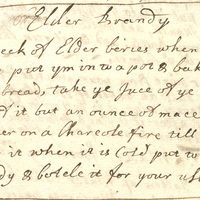 Elder Brandy
eck of Elder beries when
put ym in to a pot & bak
bread, take ye Juce of ye
d it but an ounce of mace
er on a Charcole fire till
it when it is Cold put to
dy & botele it for your us